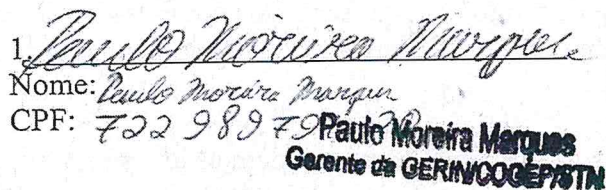 1. Paulo Moreira Marques
Nome: Paulo Moreira Marques
CPF: 722 989 79
Paulo Moreira Marques
Gerente da GERIN/COGEP/STN